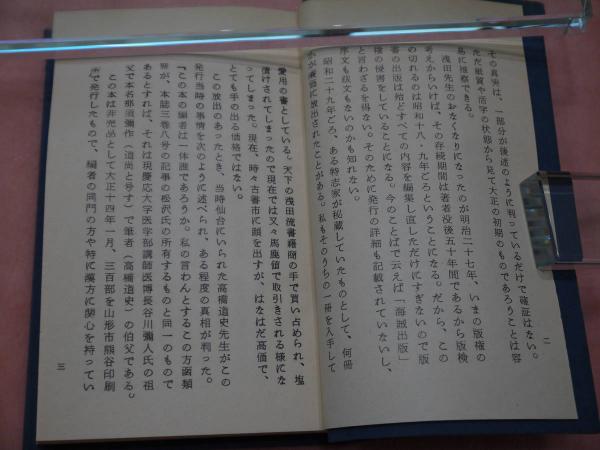 その真実は、一部分が後述のように判っているだけで確証はない。
ただ紙質や活字の状態から見て大正の初期のものであろうことは容
易に推察できる。
浅田先生のおなくなりになったのが明治二十七年、いまの版権の
考えからいけば、その存続期間は著者没後五十年間であるから版検
の切れるのは昭和十八・九年ごろということになる。だから、この
書の出版は殆どすべての内容を編集し直しただけにすぎないので版
権の侵害をしていることになる。今のことばで云えば「海賊出版」
と言わざるを得ない。そのために発行の詳細も記載されていないし、
序文も跋文もないのかも知れない。
昭和二十九年ごろ、ある特志家が秘蔵していたものとして、何冊
かが廉価に放出されたことがある。私もそのうちの一冊を入手して
二
愛用の書としている。天下の浅田流書籍商の手で買い占められ、塩
漬けされてしまったので現在では又々馬鹿値で取引きされる様にな
ってしまった。現在、時々古書市に顔を出すが、はなはだ高価で、
とても手の出る価格ではない。
この放出のあったとき、当時仙台にいられた高橋道史先生がこの
発行当時の事情を次のように述べられ、ある程度の真相が判った。
『この本の編者は一体誰であろうか。私の言わんとするこの方函類
聚が、本誌三巻八号の記事の松沢氏の所有するものと同一のもので
あるとすれば、それは現慶応大学医学部講師医博長谷川彌人氏の祖
父で本名那須彌作(道尚と号す)で筆者(高橋道史)の伯父である。
この本は非売品として大正十四年一月、三百部を山形市熊谷印刷
所で発行したもので、編者の同門の方や特に漢方に関心を持ってい
三